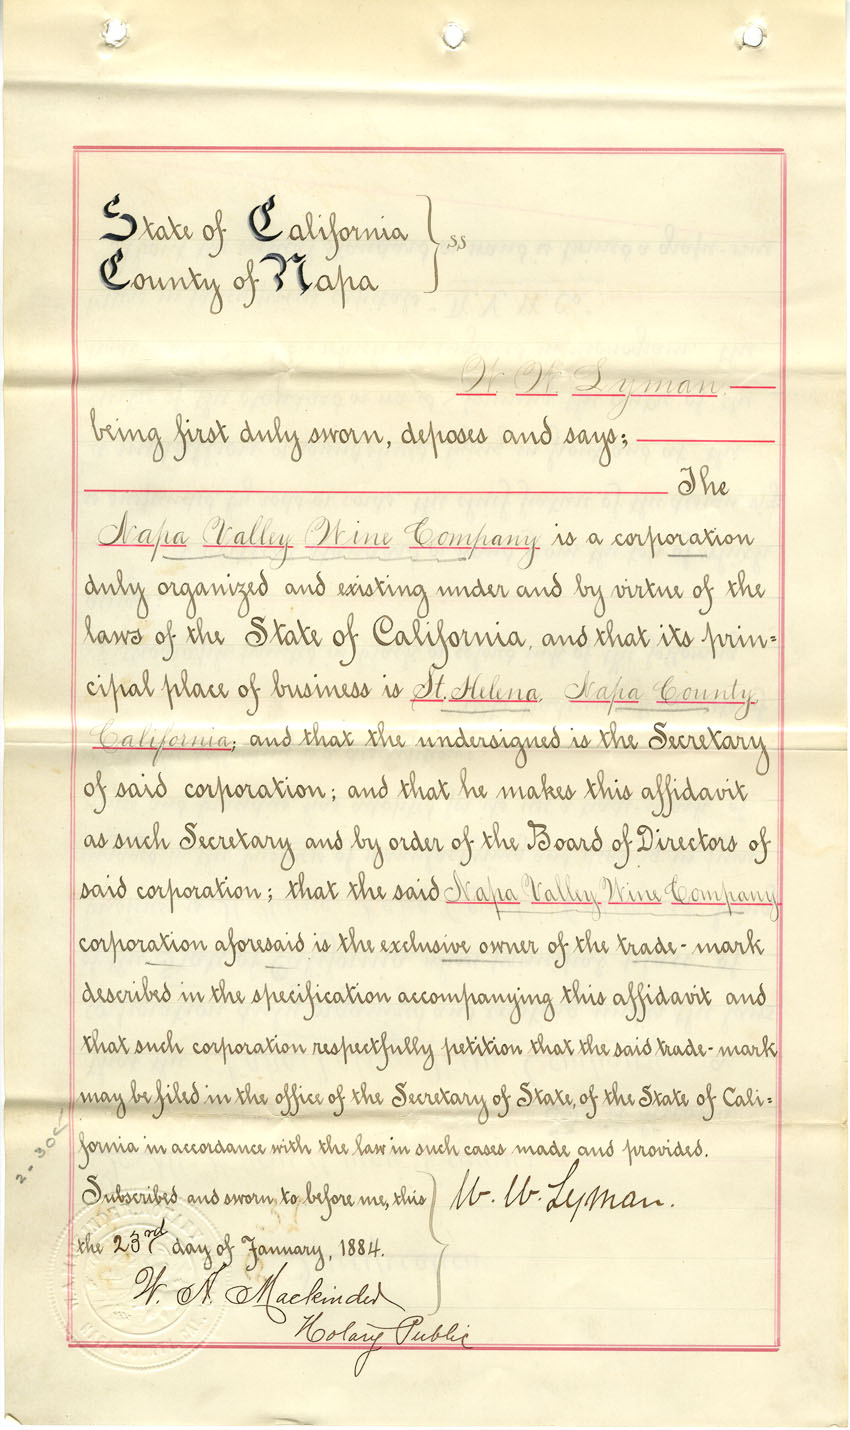 State of California } ss
County of Napa
W. W. Lyman.
being first duly sworn, deposes and says;
The
Napa Valley Wine Company is a corporation
duly organized and existing under and by virtue of the
laws of the State of California, and that its prin=
cipal place of business is St. Helena, Napa County,
California; and that the undersigned is the Secretary
of said corporation; and that he makes this affidavit
as such Secretary and by order of the Board of Directors of
said corporation; that the said Napa Valley Wine Company
corporation aforesaid is the exclusive owner of the trade-mark
described in the specification accompanying this affidavit and
that such corporation respectfully petition that the said trade-mark
may be filed in the office of the Secretary of State, of the State of Cali=
fornia in accordance with the law in such cases made and provided.
Subscribed and sworn to before me, this } W. W. Lyman.
the 23rd day of January, 1884.
W. A. Mackinder
Notary Public